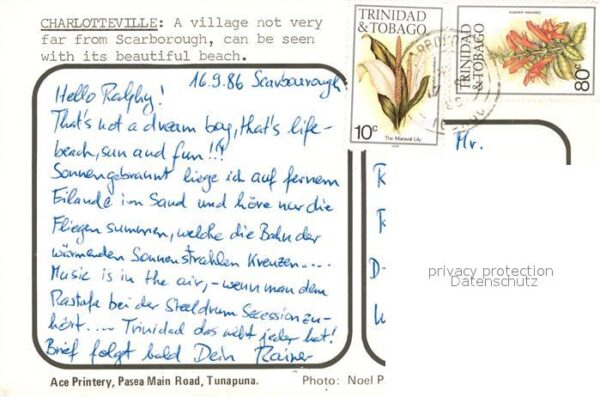 CHARLOTTEVILLE: A village not very
far from Scarborough, can be seen
with its beautiful beach.
16.9.86 Scarborough
Hello Ralphy!
That's not a dream bay, that's life-
beach, sun and fun!!!
Sonnengebrannt liege ich auf fernem
Eilande im Sand und höre nur die
Fliegen summen, welche die Bahn der
wärmenden Sonnenstrahlen Kreuzen....
Music is in the air, - wenn man dem
Rastafa bei der Steeldrum Secession zu-
hört.... Trinidad das nicht jeder hat!
Brief folgt bald Dein Rainer
Ace Printery, Pasea Main Road, Tunapuna.
Photo: Noel P.
TRINIDAD
& TOBAGO
10c
The Maraval Lily
TRINIDAD
& TOBAGO
80c
Mr.
privacy protection
Datenschutz